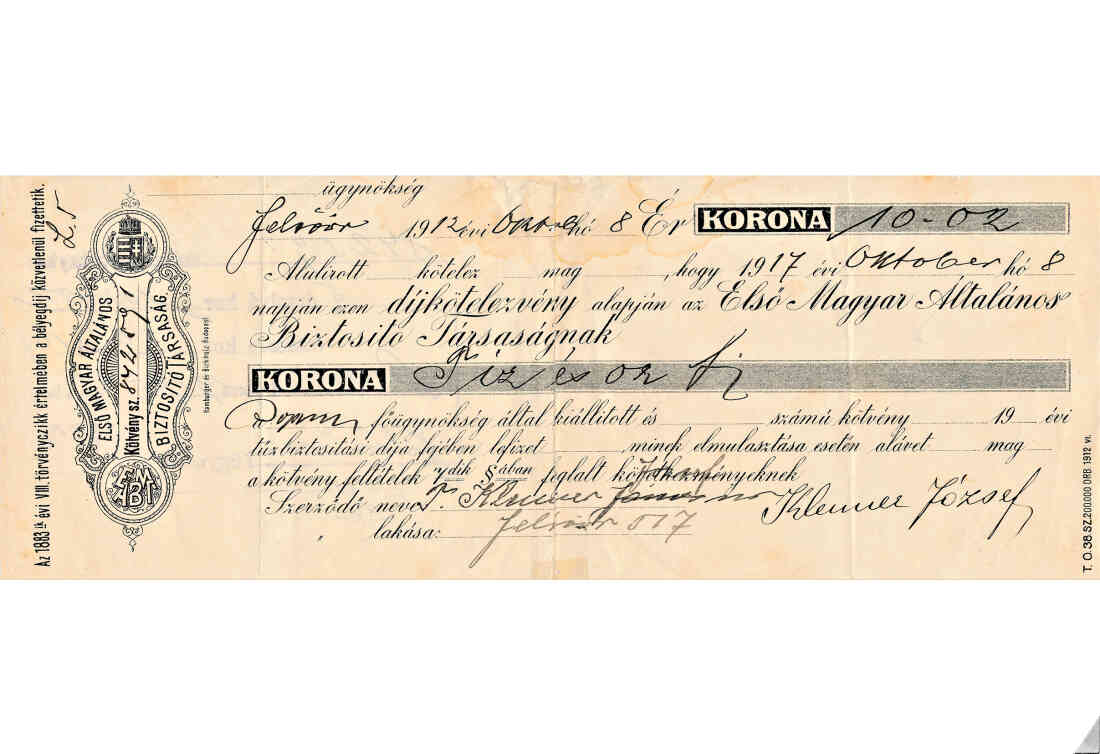 Az 1883 ik évi VIII. törvényczikk értelmében a bélyegdij közvetlenül fizettetik.
ELSŐ MAGYAR ÁLTALÁNOS
Kötvény sz. 8425091
BIZTOSITÓ TÁRSASÁG
Hamburger és Birkholz Budapest
ügynökség
Felsőőr 1912 évi Oktob hó 8 Ér KORONA 10-02
Alulirott kötelez mag , hogy 1917 évi Oktober hó 8
napján ezen díjkötelezvény alapján az Első Magyar Általános
Biztositó Társaságnak
KORONA Tiz és 02 f
főügynökség által kiállitott és számú kötvény 19 évi
tűzbiztositási dija fejében lefizet minek elmulasztása esetén alávet mag
a kötvény feltételek 7dik §-ában foglalt következményeknek
Szerződő neve: Klemer János Klemer József
" lakása: Felsőőr 517
T. O. 38. SZ. 200.000 DRB. 1912 VI.